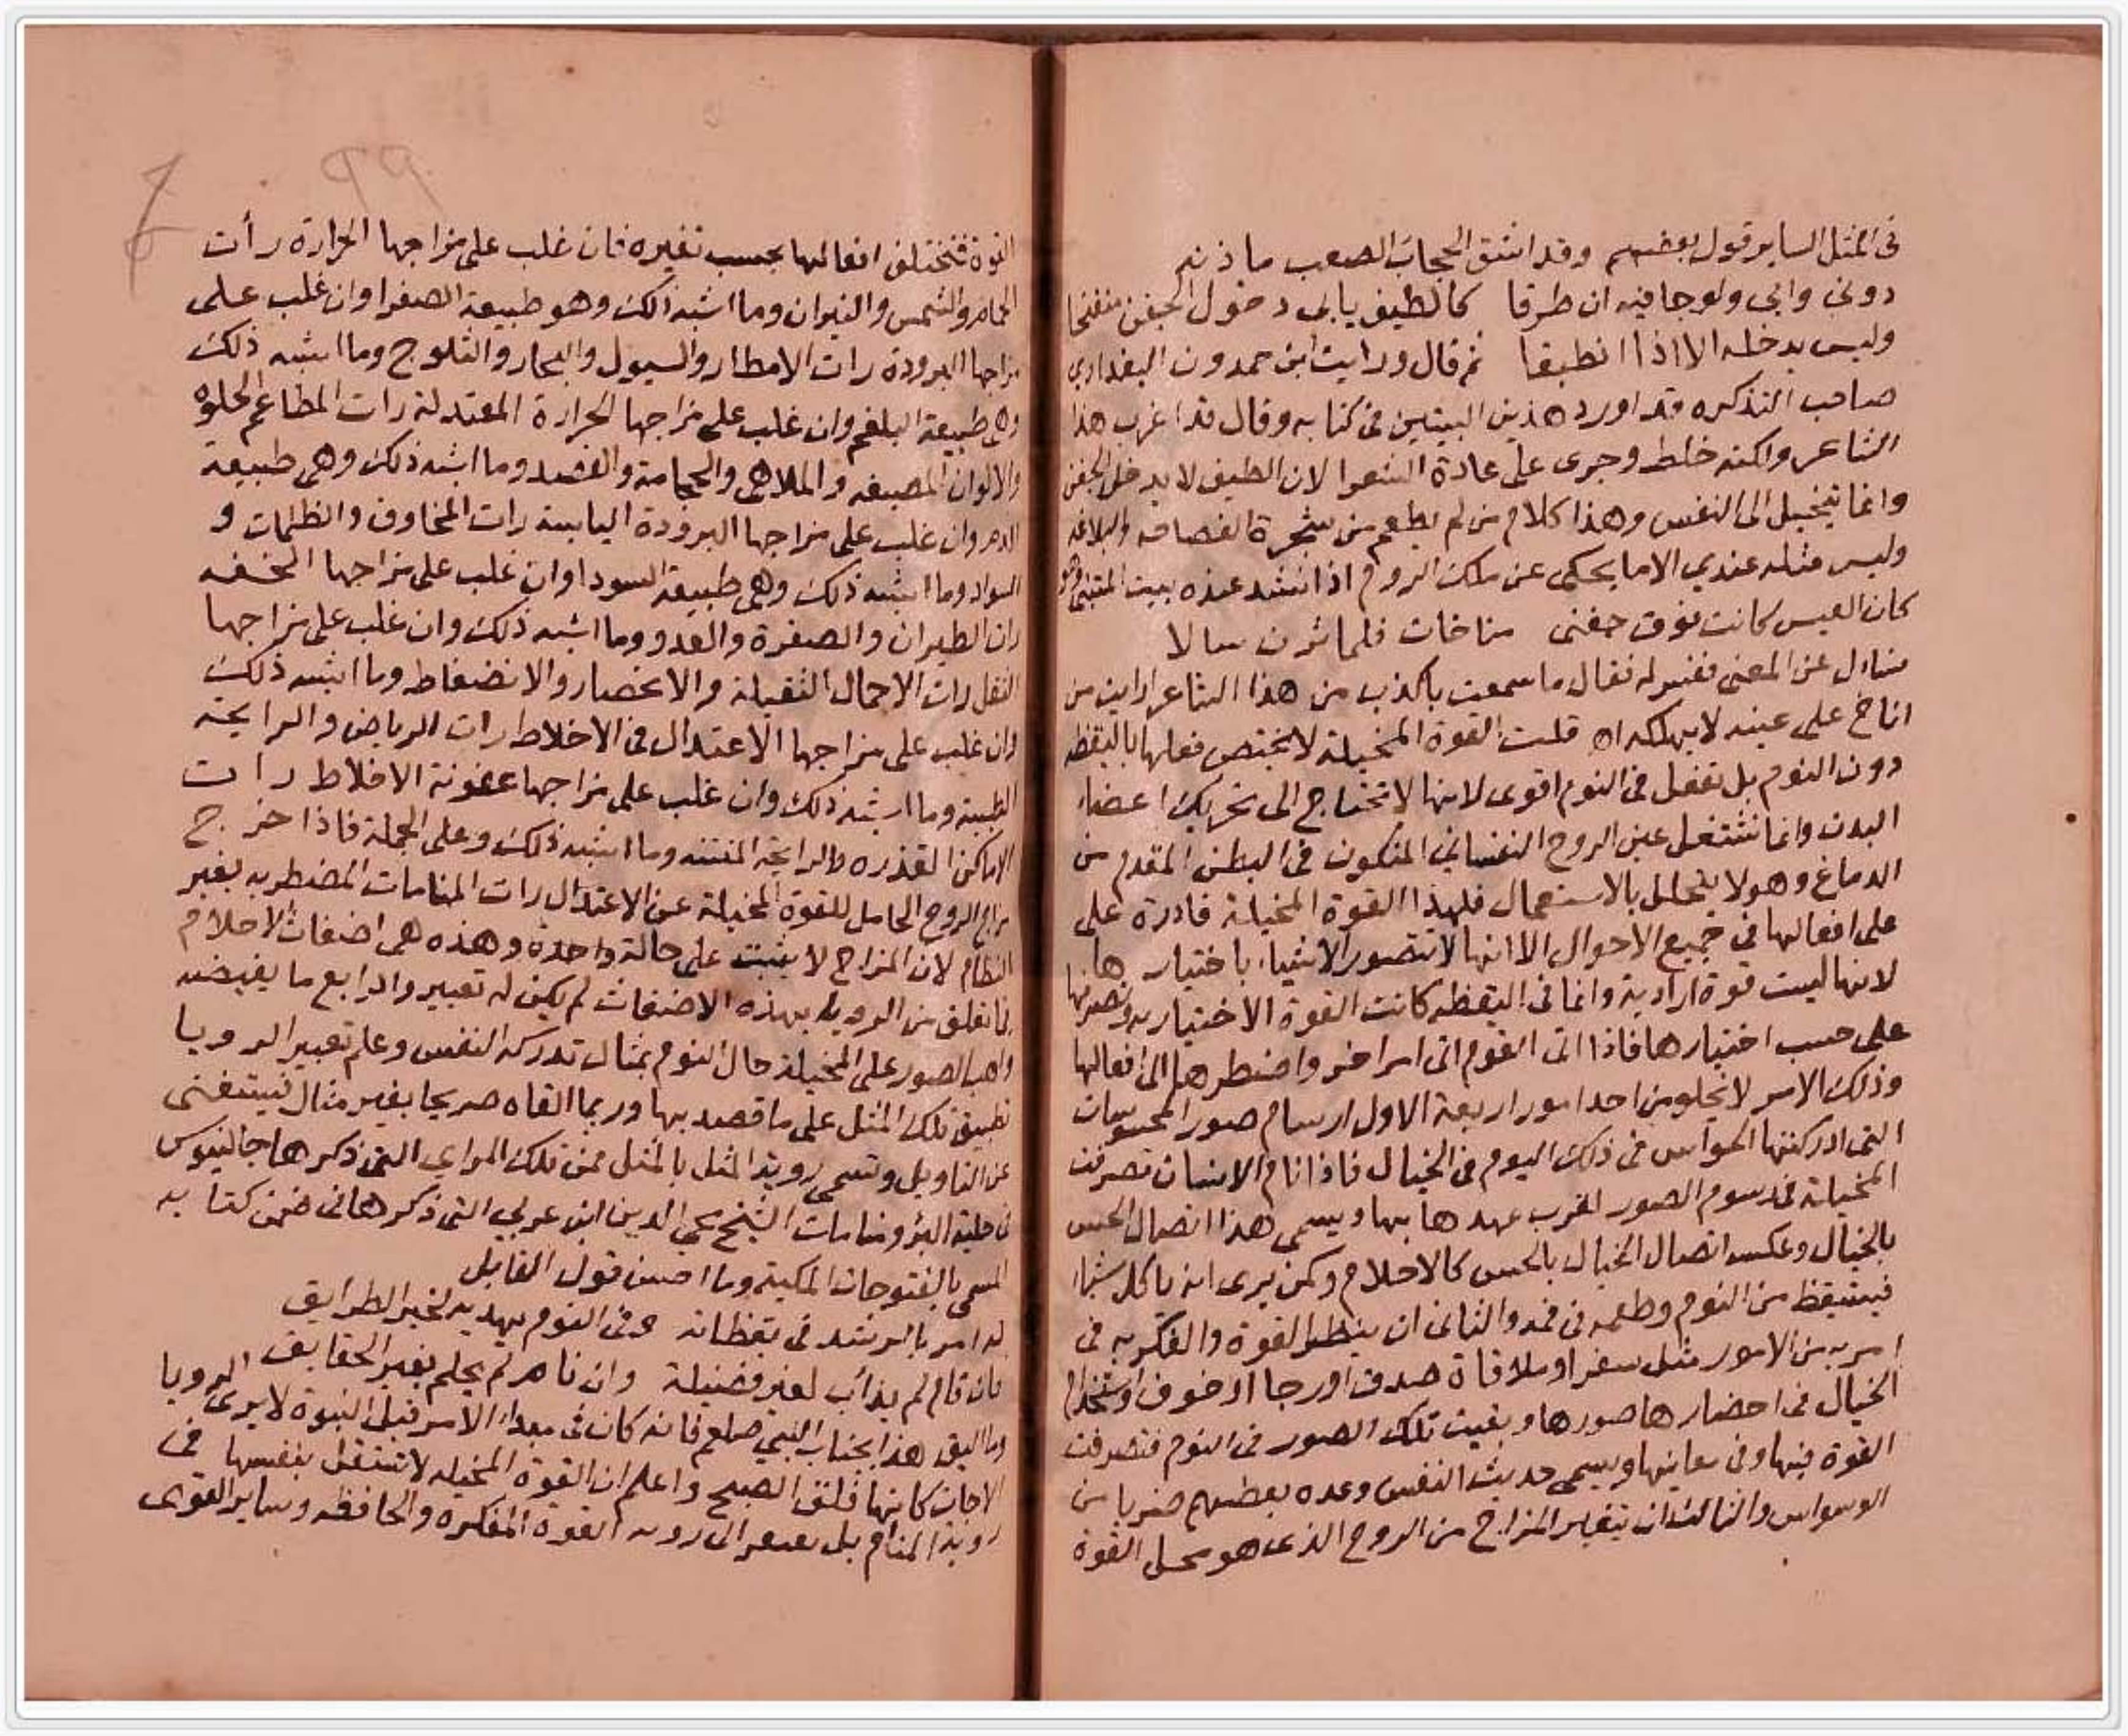 في المثل الساير قول بعضهم وقد انشق الحجاب الصعب ماذنه
دوني وابى ولوجا فيه ان طرقا كالطيف يابى دخول الجفن منفتحا
وليس يدخله الا اذا انطبقا ثم قال ورايت ابن حمدون البغدادي
صاحب التذكره قد اورد هذين البيتين في كتابه وقال قد اغرب هذا
الشاعر ولكنه خلط وجرى على عادة الشعرا لان الطيف لا يدخل الجفن
وانما يتخيل الى النفس وهذا كلام من لم يطعم من شجرة الفصاحه والبلاغه
وليس مثله عندي الا ما يحكى عن ملك الروم اذا انشد عنده بيت المتنبي
كان العيس كانت فوق جفني مناخات فلما ثرن سالا
فسال عن المعنى ففسر له فقال ما سمعت باكذب من هذا الشاعر ارايت من
اناخ على عينه لا يهلكه اه قلت القوة المخيلة لا يختص فعلها باليقظه
دون النوم بل تفعل في النوم اقوى لانها لا تحتاج الى تحريك اعضاء
البدن وانما تشتغل عين الروح النفساني المتكون في البطن المقدم من
الدماغ وهو لا يتحلل بالاستعمال فلهذا القوة المخيلة قادرة على
على افعالها في جميع الاحوال الا انها لا تتصور الاشياء باختيارها
لانها ليست قوة ارادية وانما في اليقظه كانت القوة الاختياريه
على حسب اختيارها فاذا اتى النوم اتى امر اخر واضطرها الى افعالها
وذلك الامر لا يخلو من احد امور اربعة الاول ارسام صور المحسوسات
التي ادركتها الحواس في ذلك اليوم في الخيال فاذا نام الانسان تصرفت
المخيلة في رسوم الصور لقرب عهدها بها ويسمى هذا اتصال الحس
بالخيال وعكسه اتصال الخيال بالحس كالاحلام وكمن يرى انه ياكل شيا
فيستيقظ من النوم وطعمه في فمه والثاني ان ينظر القوة والفكريه في
امر من الامور مثل سفر او ملاقاة صدق او رجا او خوف او استخدام
الخيال في احضارها صورها وبقيت تلك الصور في النوم فتصرفت
القوة فيها وفي معانيها ويسمى حديث النفس وعده بعضهم ضربا من
الوسواس والثالث ان يتغير المزاج من الروح الذي هو محل القوة
القوة فتختلف افعالها بحسب تغيره فان غلب على مزاجها الحرارة رأت
الحمام والشمس والنيران وما اشبه ذلك وهو طبيعة الصفرا وان غلب على
مزاجها البرودة رات الامطار والسيول والبحار والثلوج وما اشبه ذلك
وهي طبيعة البلغم وان غلب على مزاجها الحرارة المعتدلة رات المطاعم الحلوه
والالوان المصبغه والملاهي والحجامة والفصد وما اشبه ذلك وهي طبيعة
الدم وان غلب على مزاجها البرودة اليابسة رات المخاوف والظلمات و
السواد وما اشبه ذلك وهي طبيعة السودا وان غلب على مزاجها الخفه
رات الطيران والصفرة والعدو وما اشبه ذلك وان غلب على مزاجها
الثقل رات الاحمال الثقيلة والانحصار والانضغاط وما اشبه ذلك
وان غلب على مزاجها الاعتدال في الاخلاط رات الرياض والرايحة
الطيبة وما اشبه ذلك وان غلب على مزاجها عفونة الاخلاط رات
الاماكن القذره والرايحة المنتنه وما اشبه ذلك وعلى الجملة فاذا خرج
مزاج الروح الحامل للقوة المخيلة عن الاعتدال رات المنامات المضطربه بغير
النظام لان المزاج لا يثبت على حالة واحدة وهذه هي اضغاث الاحلام
فما تعلق من الرويا بهذه الاضغاث لم يكن له تعبير والرابع ما يفيضه
واهب الصور على المخيلة حال النوم بمثال تدركه النفس وعلم تعبير الرويا
تطبيق تلك المثل على ما قصد بها وربما القاه صريحا بغير مثال فيستغني
عن التاويل وتسمى روية المثل بالمثل فمن تلك المراي التي ذكرها جالينوس
في حيلة البرؤ ومنامات الشيخ محي الدين ابن عربي التي ذكرها في ضمن كتابه
المسمى بالفتوحات المكية وما احسن قول القايل
له امر بالرشد في يقظاته وفي النوم يهديه لخير الطرايق
فان قام لم يدأب لغير فضيلة وان نام لم يحلم بغير الحقايق
وما اليق هذا بجناب النبي صلعم فانه كان في مبداء الامر قبل النبوة لا يرى الرويا
الا جات كانها فلق الصبح واعلم ان القوة المخيله لا تستقل بنفسها في
روية المنام بل تفتقر الى رويه القوة المفكره والحافظه وساير القوى